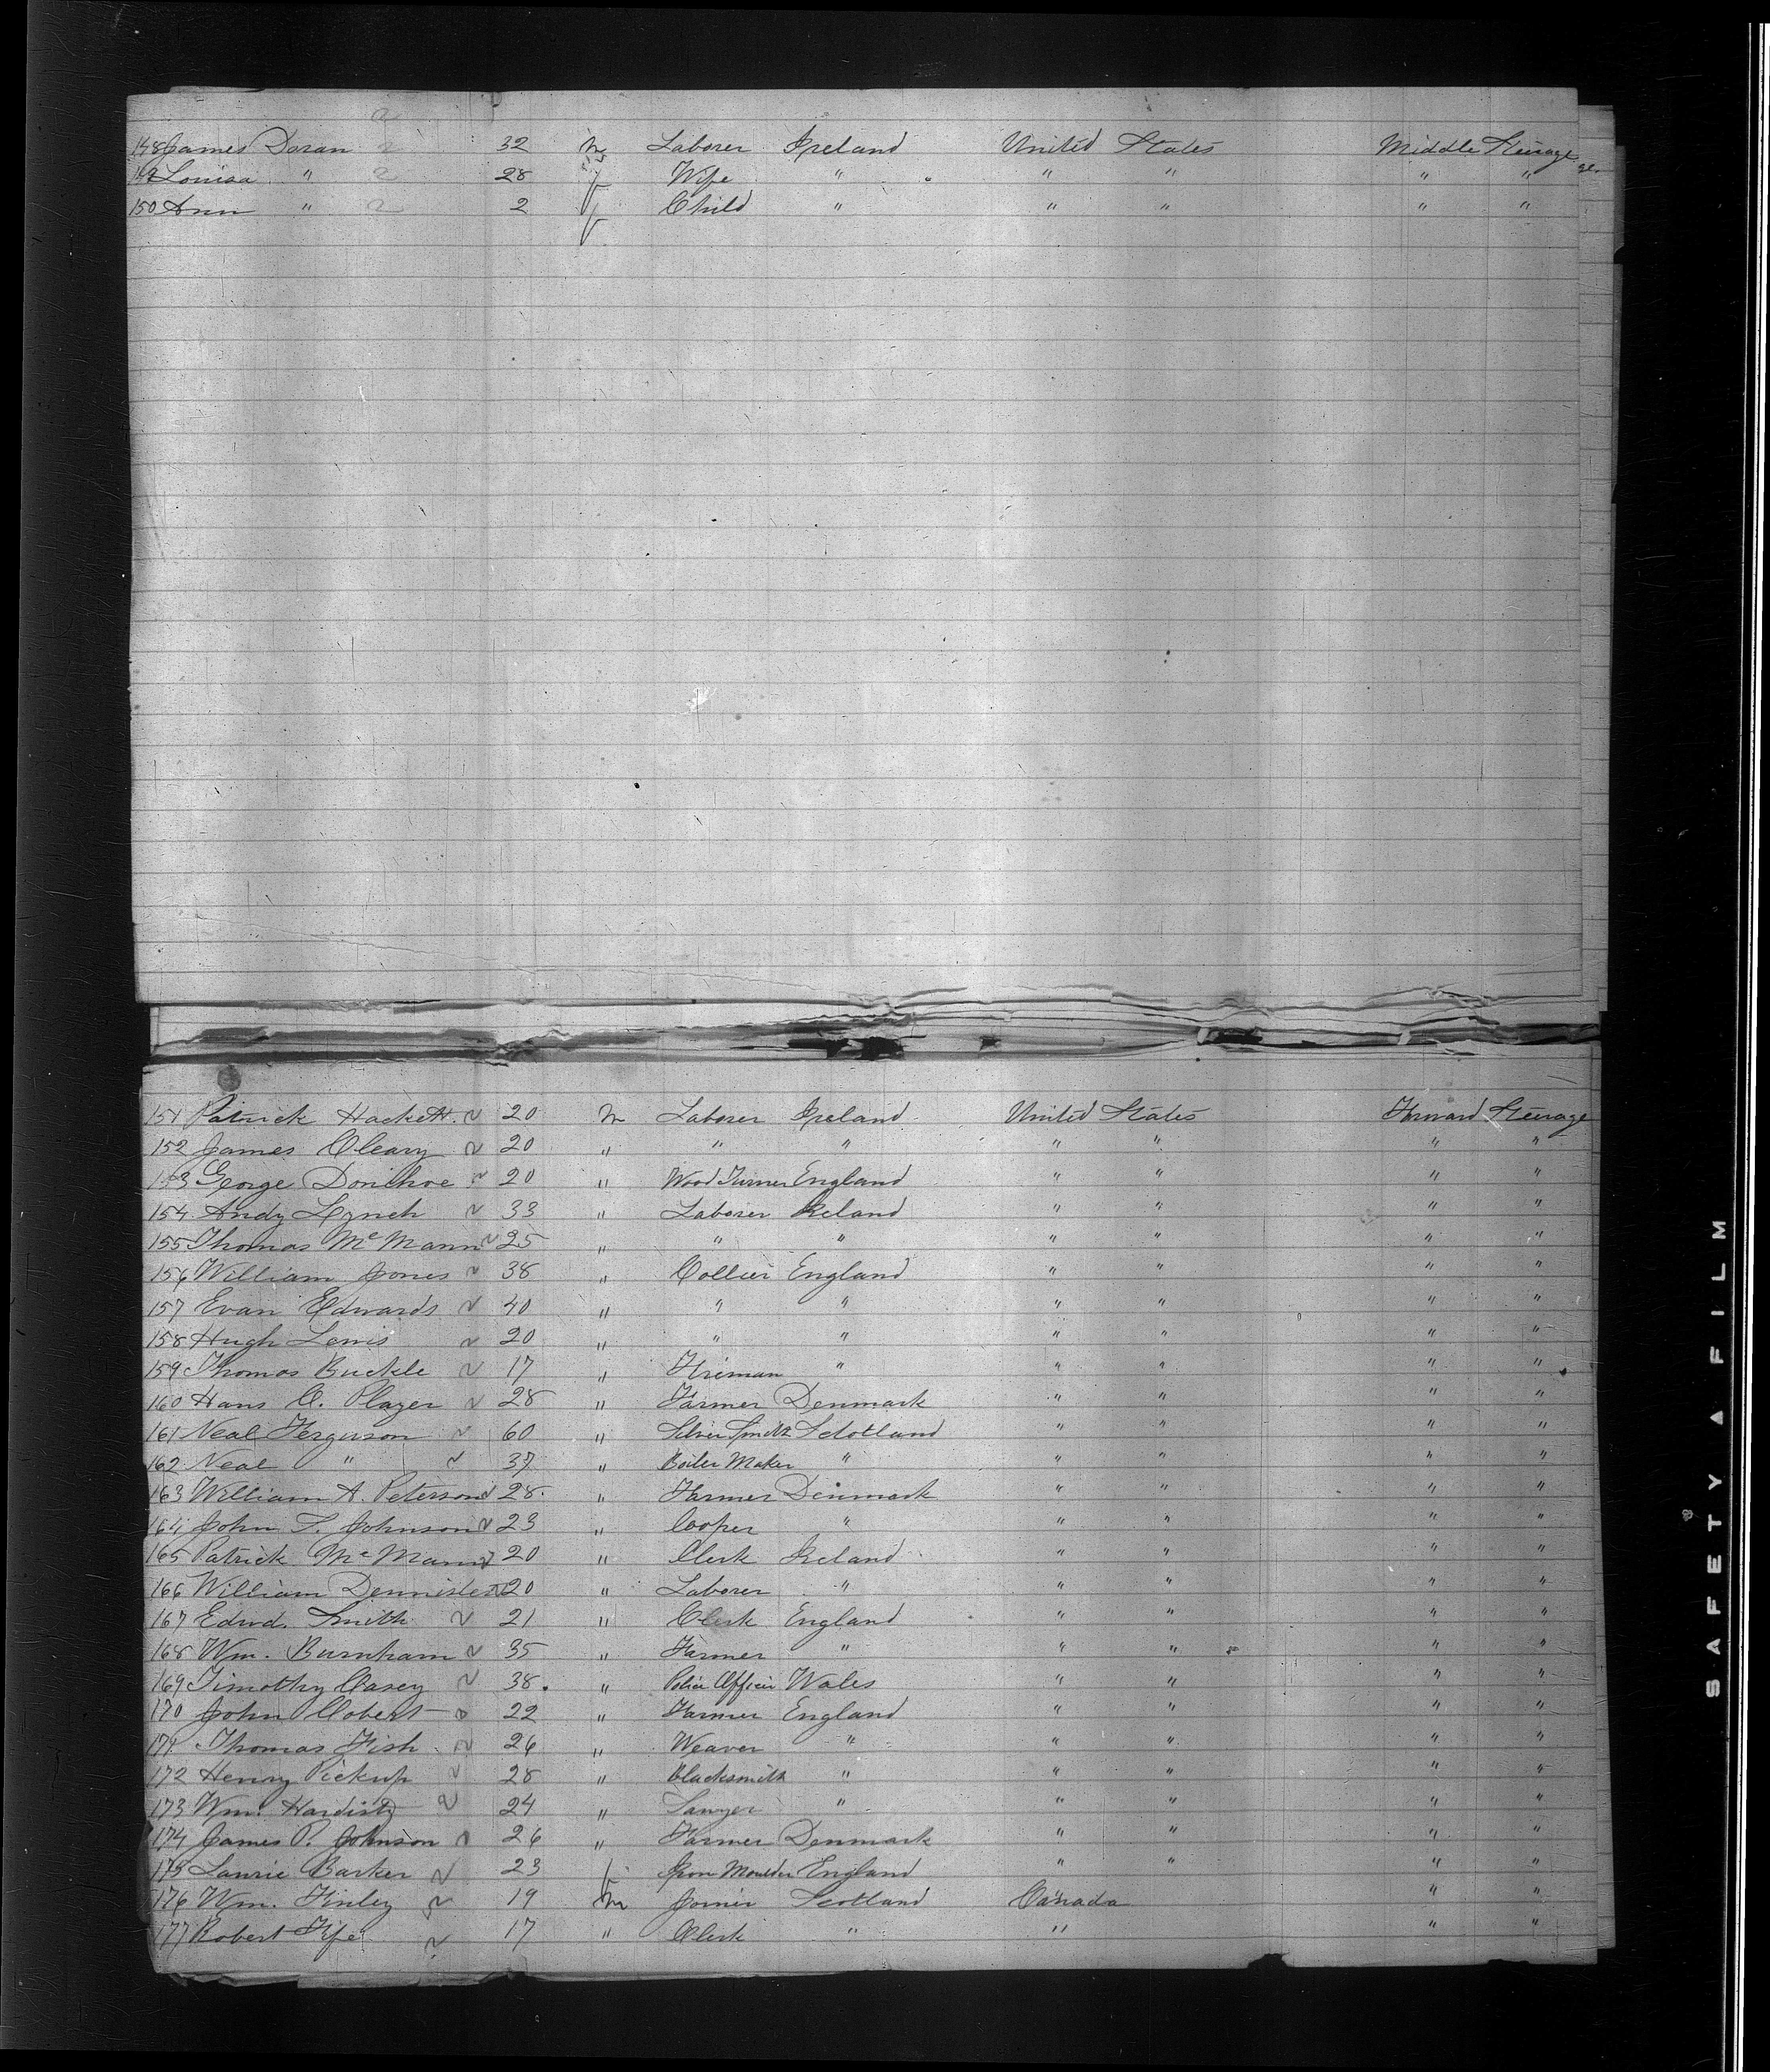 148 James Doran 32 m Laborer Ireland United States Middle Steerage
149 Louisa " 28 f Wife " " " " "
150 Ann " 2 f Child " " " " "
151 Patrick Hackett 20 m Laborer Ireland United States Forward Steerage
152 James Cleary 20 " " " " " " "
153 George Donihoe 20 " Wood Turner England " " " "
154 Andy Lynch 33 " Laborer Ireland " " " "
155 Thomas McMann 25 " " " " " " "
156 William Jones 38 " Collier England " " " "
157 Evan Edwards 40 " " " " " " "
158 Hugh Lewis 20 " " " " " " "
159 Thomas Buckle 17 " Fireman " " " " "
160 Hans C. Plazer 28 " Farmer Denmark " " " "
161 Neal Ferguson 60 " Silver Smith Scotland " " " "
162 Neal " 37 " Boiler Maker " " " " "
163 William A. Peterson 28 " Farmer Denmark " " " "
164 John F. Johnson 23 " Cooper " " " " "
165 Patrick McMann 20 " Clerk Ireland " " " "
166 William 20 " Laborer " " " " "
167 Edwd. Smith 21 " Clerk England " " " "
168 Wm. Burnham 35 " Farmer " " " " "
169 Timothy Casey 38 " Police Officer Wales " " " "
170 John Cobert 22 " Farmer England " " " "
171 Thomas Fish 26 " Weaver " " " " "
172 Henry Pickup 28 " Blacksmith " " " " "
173 Wm. Hardisty 24 " Sawyer " " " " "
174 James P. Johnson 26 " Farmer Denmark " " " "
175 Laurie Barker 23 f Iron Moulder England " " " "
176 Wm. Finley 19 m Joiner Scotland Canada " "
177 Robert Fife 17 " Clerk " " " "
SAFETY FILM